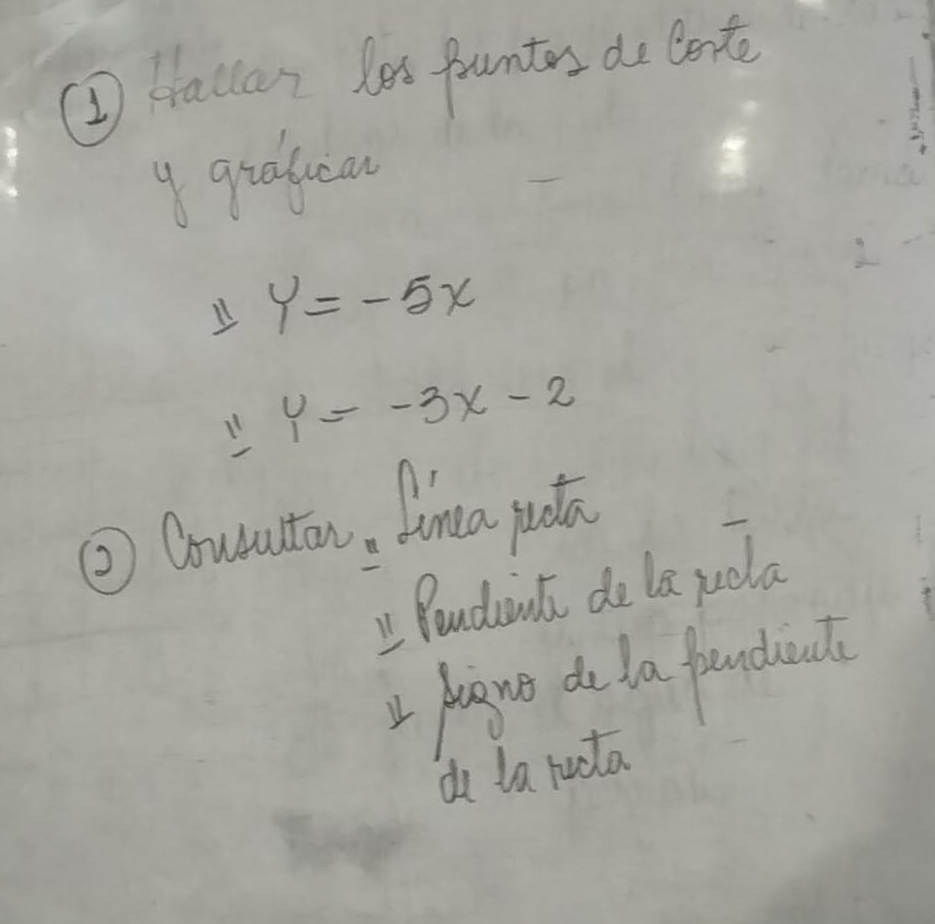 ① Hallar los puntos de Corte
y gráficar
" Y = - 5x
" Y = - 3x - 2
② Consultar " Línea recta
" Pendiente de la recta
" Signo de la pendiente
de la recta